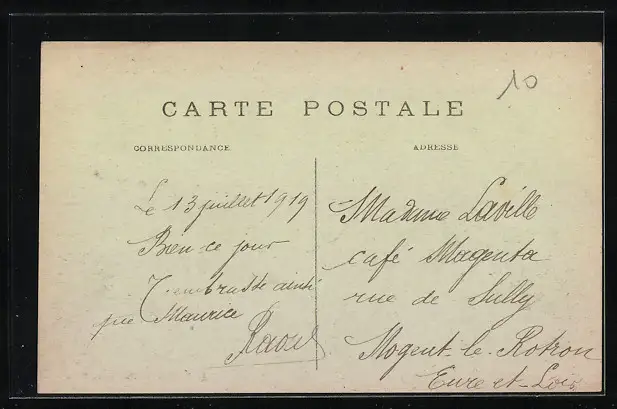 10
CARTE POSTALE
CORRESPONDANCE
ADRESSE
Le 13 juillet 1919
Bien ce jour
T'embrasse ainsi
que Maurice
Raoul
Madame Laville
café Magenta
rue de Sully
Nogent-le-Rotrou
Eure-et-Loir